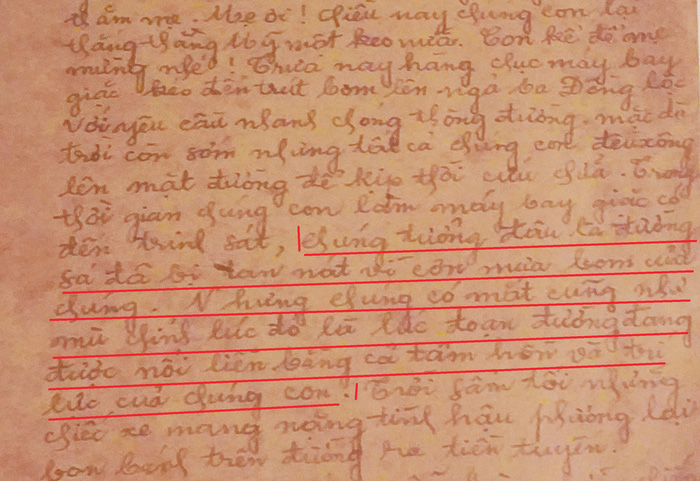 thắm mẹ. Mẹ ơi! Chiều nay chúng con lại
thắng thằng Mỹ một keo nữa. Con kể để mẹ
mừng nhé! Trưa nay hàng chục máy bay
giặc kéo đến trút bom lên ngã ba Đồng Lộc
Với yêu cầu nhanh chóng thông đường. mặc dù
trời còn sớm nhưng tất cả chúng con đều xông
lên mặt đường để kịp thời cứu chữa. Trong
thời gian chúng con làm máy bay giặc có
đến trinh sát, chúng tưởng đâu là đường
sá đã bị tan nát vì cơn mưa bom của
chúng. Nhưng chúng có mắt cũng như
mù chính lúc đó là lúc đoạn đường đang
được nối liền bằng cả tâm hồn và trí
lực của chúng con. Trời sầm tối những
chiếc xe mang nặng tình hậu phương lại
bon bánh trên đường ra tiền tuyến.